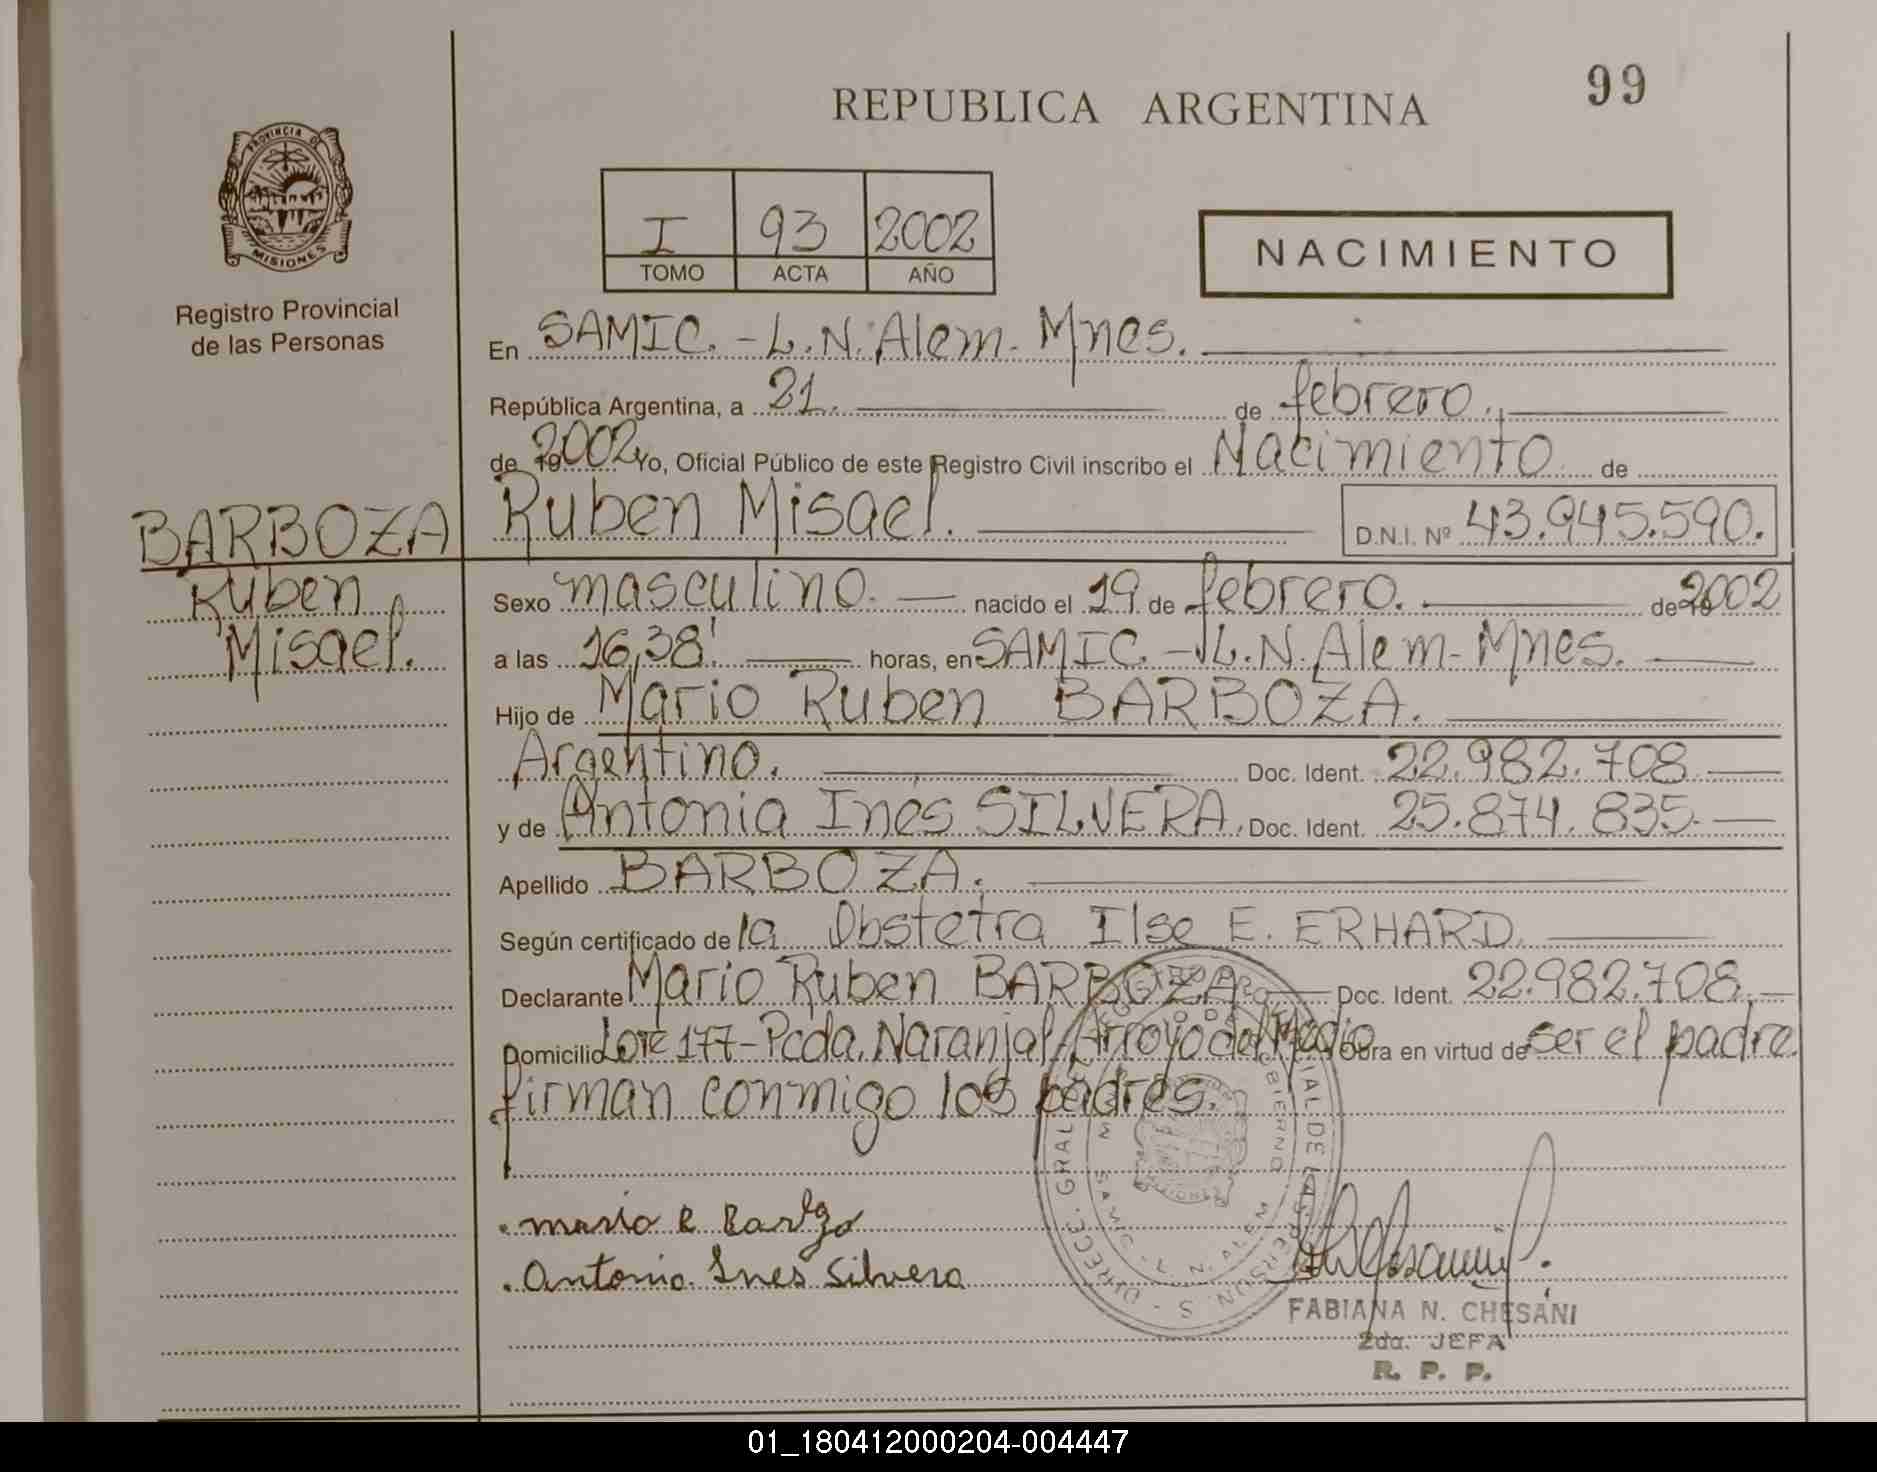 99
REPUBLICA ARGENTINA
PROVINCIA DE
MISIONES
Registro Provincial
de las Personas
I 93 2002
TOMO ACTA AÑO
NACIMIENTO
En SAMIC. - L. N. Alem - Mnes.
República Argentina, a 21. de febrero.
de 2002 Yo, Oficial Público de este Registro Civil inscribo el Nacimiento de
Ruben Misael. D.N.I. Nº 43.945.590.
BARBOZA
Ruben
Misael.
Sexo masculino. nacido el 19 de febrero. de 2002
a las 16,38' horas, en SAMIC. - L. N. Alem - Mnes.
Hijo de Mario Ruben BARBOZA.
Argentino. Doc. Ident. 22.982.708
y de Antonia Inés SILVERA. Doc. Ident. 25.874.835.
Apellido BARBOZA.
Según certificado de la Obstetra Ilse E. ERHARD.
Declarante Mario Ruben BARBOZA Doc. Ident. 22.982.708.
Domicilio Lote 177 - Pcda. Naranjal Arroyo del Medio Obra en virtud de ser el padre
firman conmigo los padres.
mario R Barboza
Antonia Ines Silvera
S. N. ALEM
FABIANA N. CHESANI
2da. JEFA
R. P. P.
01_180412000204-004447